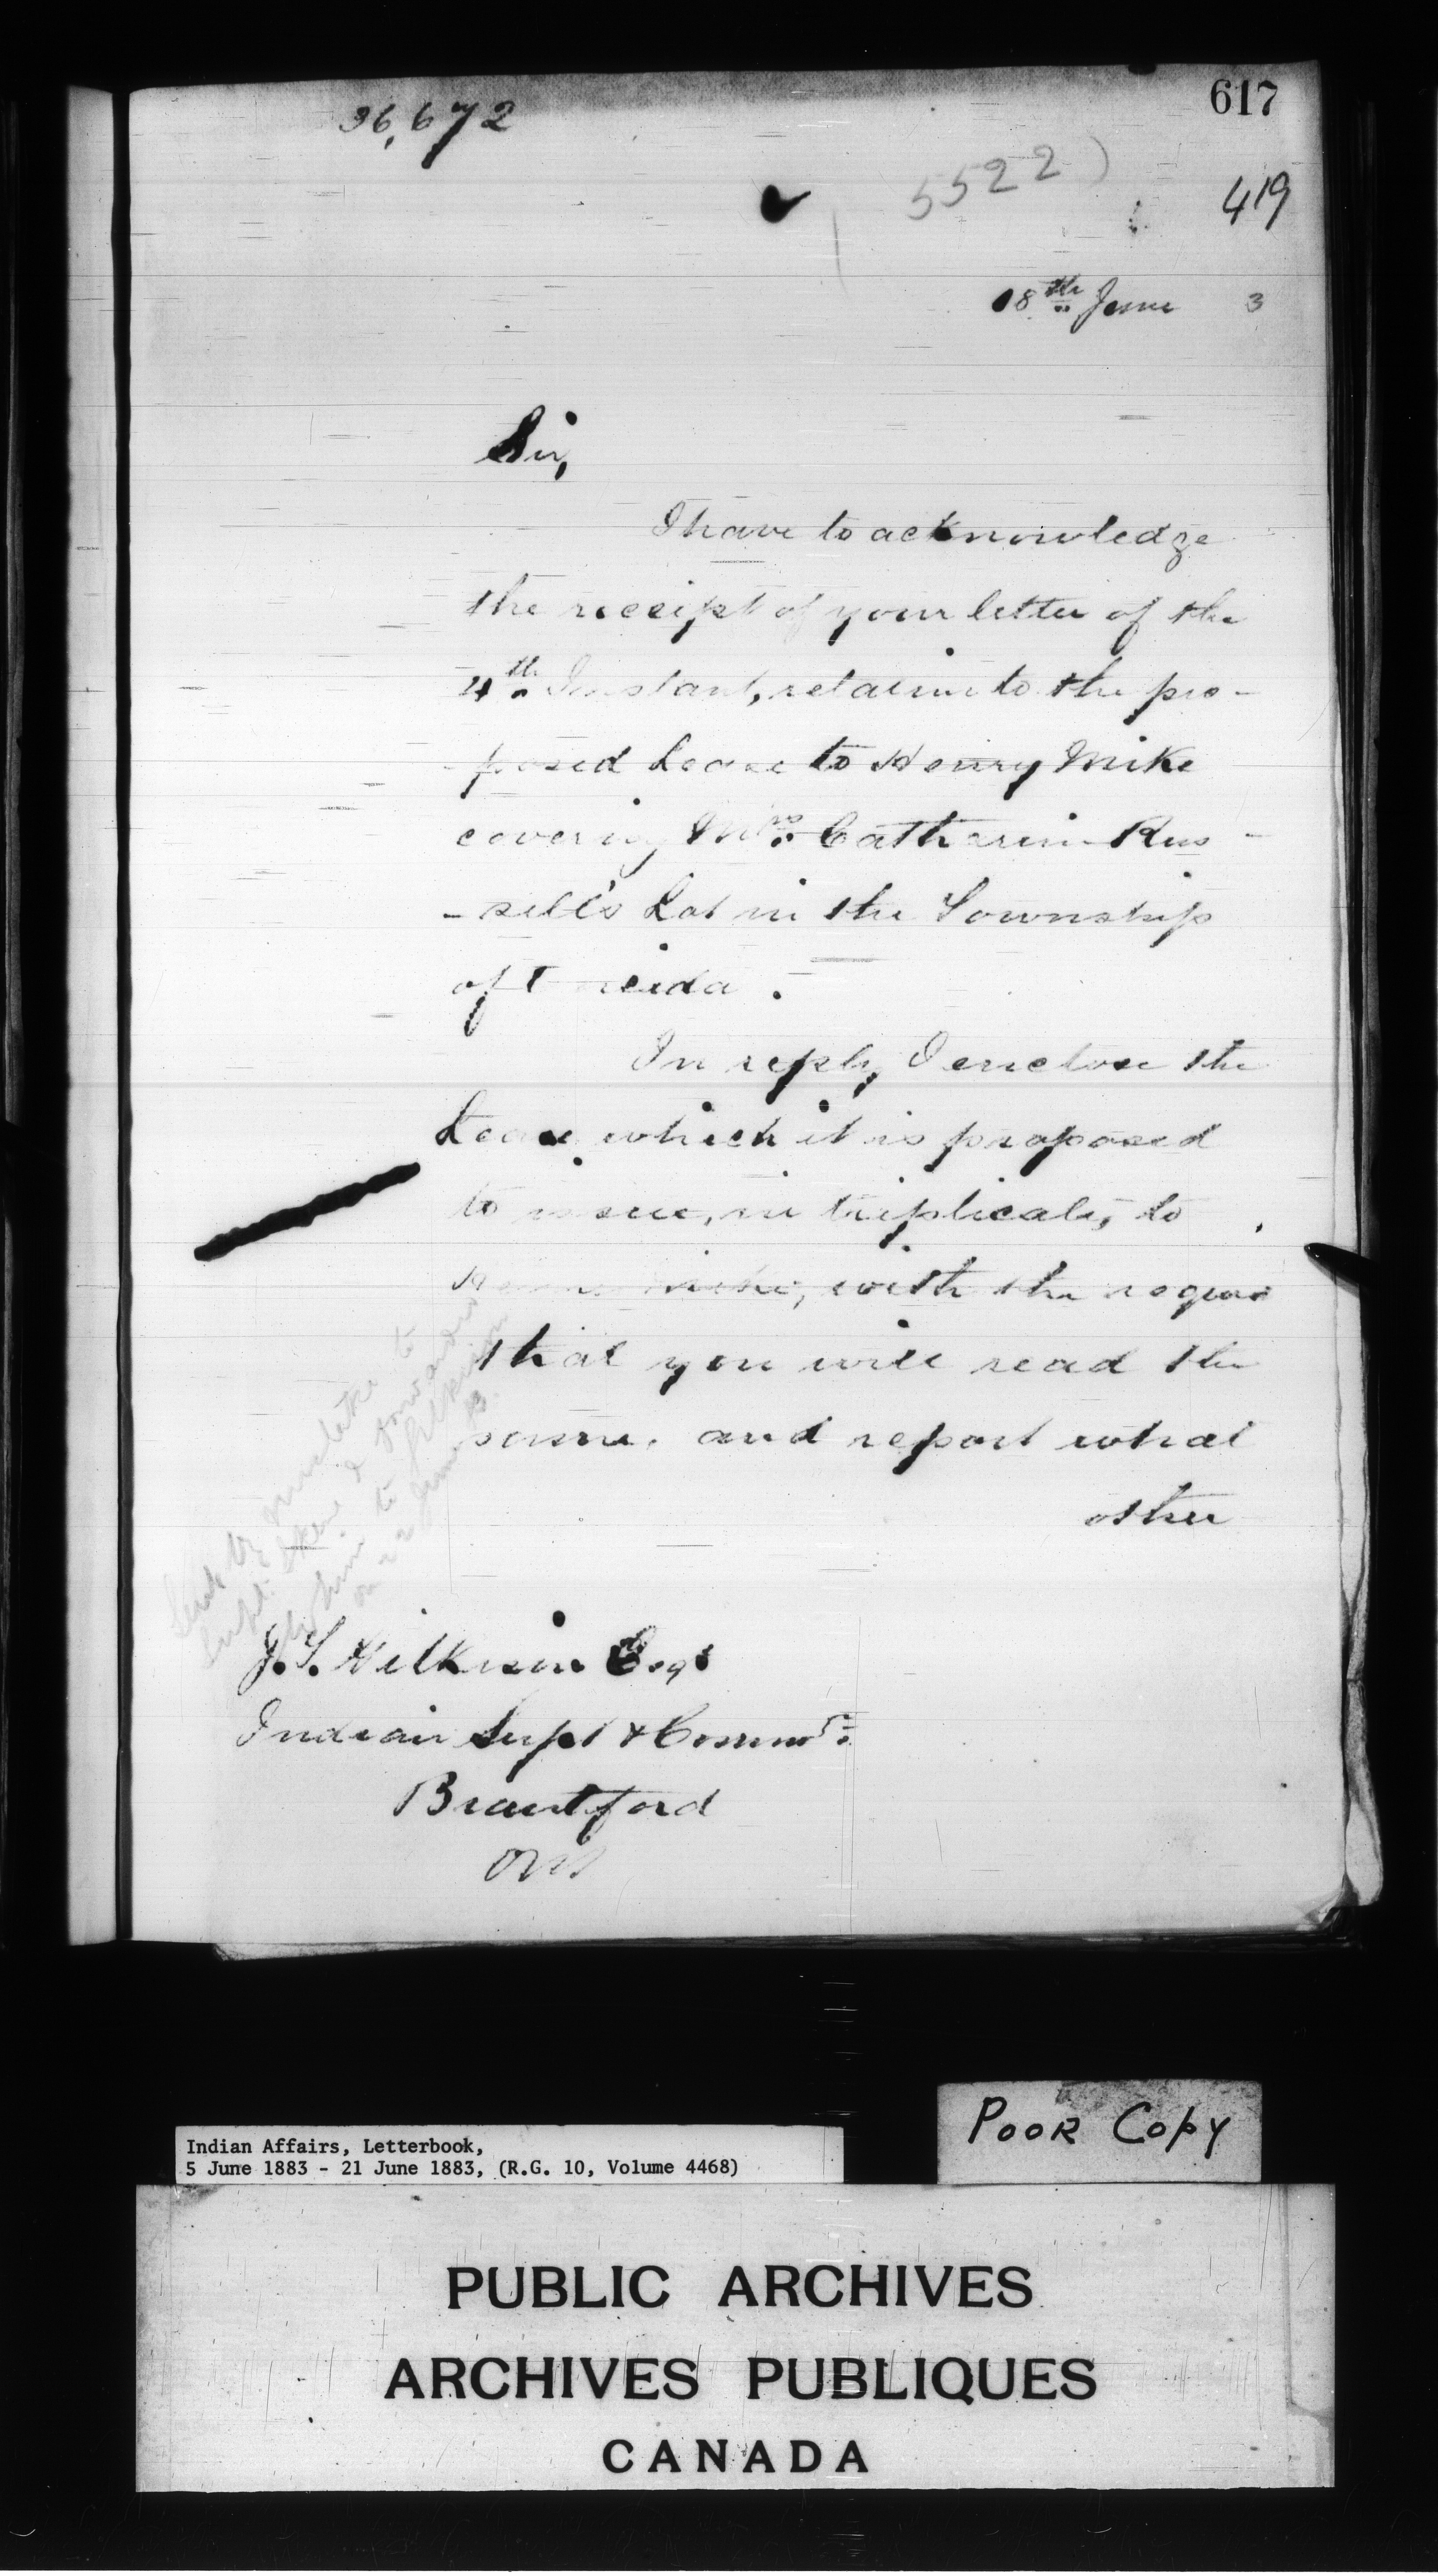 617
36,672
5522
419
18th June 3
Sir,
I have to acknowledge
the receipt of your letter of the
4th Instant, relative to the pro-
-posed Lease to Henry Mike
covering Mrs. Catherine Rus-
-sell's Lot in the Township
of Oneida.
In reply, I enclose the
Lease which it is proposed
to issue, in triplicate, to
Henry Mike, with the request
that you will read the
same, and report what
other
J. T. Gilkison Esqr
Indian Supt & Commr.
Brantford
Ont
Poor Copy
Indian Affairs, Letterbook,
5 June 1883 - 21 June 1883, (R.G. 10, Volume 4468)
PUBLIC ARCHIVES
ARCHIVES PUBLIQUES
CANADA